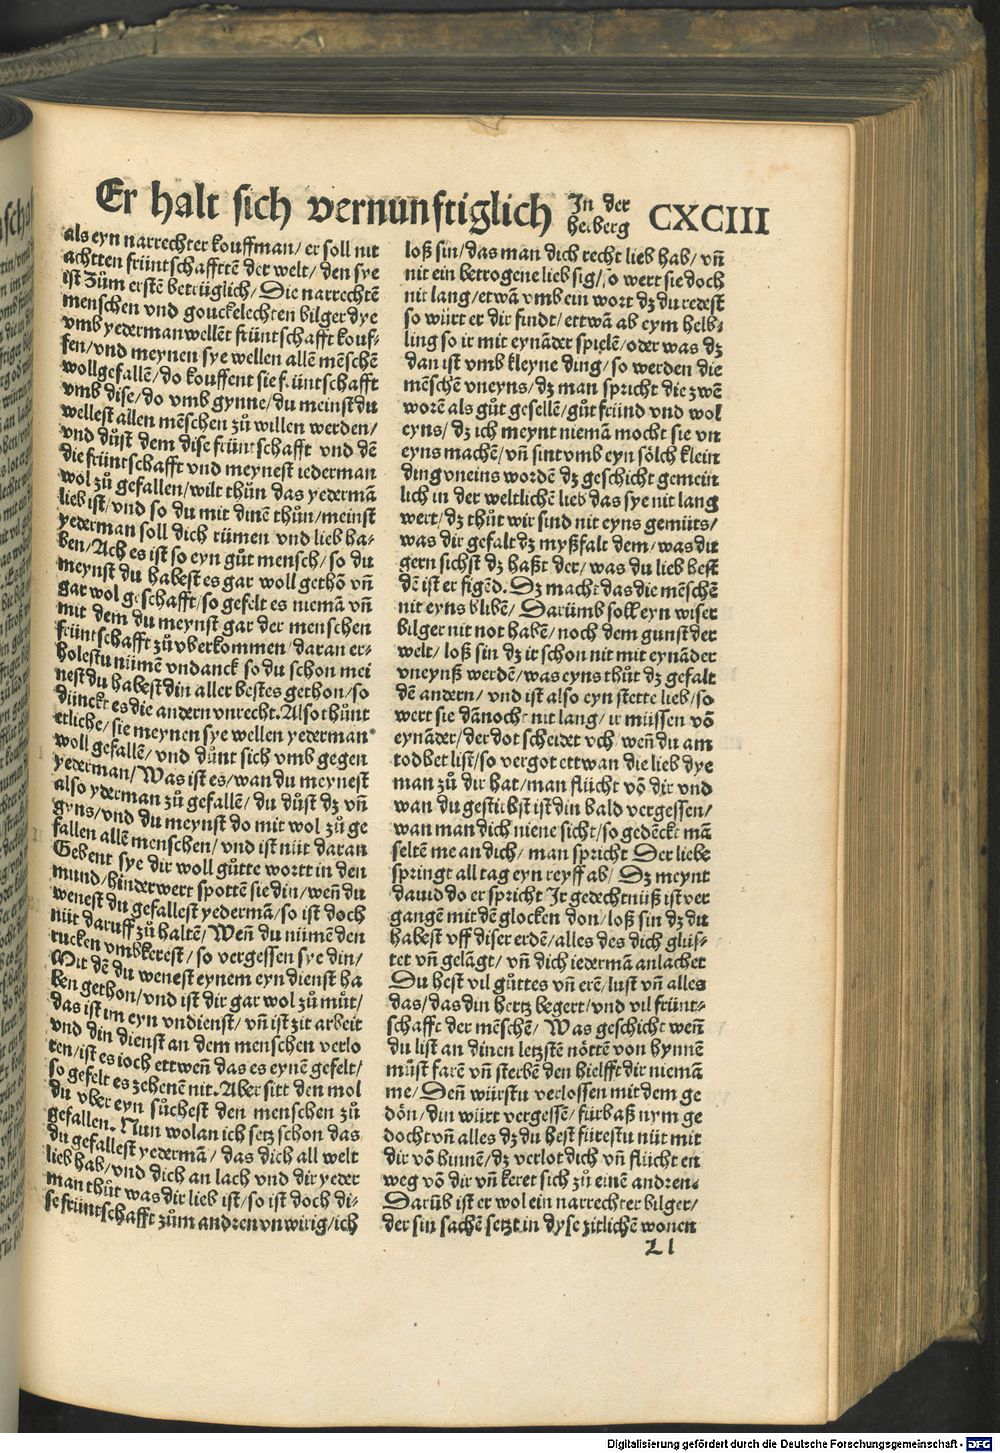 Er halt sich vernunftiglich In der herberg CXCIII
als eyn narrechter kouffman/ er soll nit
achtten früntschafftē der welt/ den sye
ist Zům erstē betrüglich/ Die narrechtē
menschen vnd gouckelechten bilger dye
vmb yederman wellēt früntschafft kouf-
fen/ vnd meynen sye wellen allē mēschē
wollgefallē/ do kouffent sie früntschafft
vmb dise/ do vmb gynne/ du meinst du
wellest allen mēschen zů willen werden/
vnd důst dem dise früntschafft vnd dē
die früntschafft vnd meynest iederman
wol zů gefallen/ wilt thůn das yedermā
lieb ist/ vnd so du mit dinē thůn/ meinst
yederman soll dich rümen vnd lieb ha-
ben/ Ach es ist so eyn gůt mensch/ so du
meynst du habest es gar woll gethō vñ
gar wol geschafft/ so gefelt es niemā vñ
mit dem du meynst gar der menschen
früntschafft zů vberkommen/ daran er-
holestu nümē vndanck so du schon mei
nest du habest din aller bestes gethon/ so
dünckt es die andern vnrecht. Also thůnt
etliche/ sie meynen sye wellen yederman
woll gefallē/ vnd důnt sich vmb gegen
yederman/ Was ist es/ wan du meynest
also yderman zů gefallē/ du důst dz vñ
gyns/ vnd du meynst do mit wol zů ge
fallen allē menschen/ vnd ist nüt daran
Gebent sye dir woll gůtte wortt in den
mund/ hinderwert spotten sie din/ weñ du
wenest du gefallest yedermā/ so ist doch
nüt daruff zů haltē/ Weñ du nümē den
rucken vmbkerest/ so vergessen sye din/
Mit dē du wenest eynem eyn dienst ha
ben gethon/ vnd ist dir gar wol zů můt/
das ist im eyn vndienst/ vñ ist zit arbeit
vnd din dienst an dem menschen verlo
ren/ ist es ioch ettweñ das es eynē gefelt/
so gefelt es zehenē nit. Aber sitt den mol
du vber eyn sůchest den menschen zů
gefallen. Nun wolan ich setz schon das
du gefallest yedermā/ das dich all welt
lieb hab/ vnd dich an lach vnd dir yeder
man thůt was dir lieb ist/ so ist doch di-
se früntschafft zům andren vnwirig/ ich
loß sin/ das man dich recht lieb hab/ vñ
nit ein betrogene lieb sig/ so wert sie doch
nit lang/ etwā vmb ein wort dz du redest
so würt er dir findt/ ettwā ab eym helb-
ling so ir mit eynāder spielē/ oder was dz
dan ist vmb kleyne ding/ so werden die
mēschē vneyns/ dz man spricht die zwē
worē als gůt gesellē/ gůt fründ vnd wol
eyns/ dz ich meynt niemā mocht sie vn
eyns machē/ vñ sint vmb eyn sölch klein
ding vneins wordē dz geschicht gemein
lich in der weltlichē lieb das sye nit lang
wert/ dz thůt wir sind nit eyns gemüts/
was dir gefalt dz myßfalt dem/ was du
gern sichst dz haßt der/ was du lieb hest
dē ist er figēd. Dz macht das die mēschē
nit eyns blibē/ Darümb soll eyn wiser
bilger nit not habē/ noch dem gunst der
welt/ loß sin dz ir schon nit mit eynāder
vneynß werdē/ was eyns thůt dz gefalt
dē andern/ vnd ist also eyn stette lieb/ so
wert sie dānocht nit lang/ ir müssen vō
eynāder/ der dot scheidet vch weñ du am
todbet list/ so vergot ettwan die lieb dye
man zů dir hat/ man flücht vō dir vnd
wan du gestirbst ist din bald vergessen/
wan man dich niene sicht/ so gedēckt mā
seltē me an dich/ man spricht Der liebe
springt all tag eyn reyff ab/ Dz meynt
dauid do er spricht Ir gedechtnüß ist ver
gangē mit dē glocken don/ loß sin dz du
habest vff diser erdē/ alles des dich glüs-
tet vñ gelāgt/ vñ dich iedermā anlachet
Du hest vil gůttes vñ erē/ lust vñ alles
das/ das din hertz begert/ vnd vil frünt-
schafft der mēschē/ Was geschicht weñ
du list an dinen letzstē nöttē von hynnē
můst farē vñ sterbē den hielfft dir niemā
me/ Deñ würstu verlossen mit dem ge
dön/ din würt vergessē/ fürbaß nym ge
docht vñ alles dz du hest fürestu nüt mit
dir vō hinnē/ dz verlot dich vñ flücht en
weg vō dir vñ keret sich zů einē andren.
Darüb ist er wol ein narrechter bilger/
der sin sachē setzt in dyse zitlichē wonen
Ll
Digitalisierung gefördert durch die Deutsche Forschungsgemeinschaft - DFG